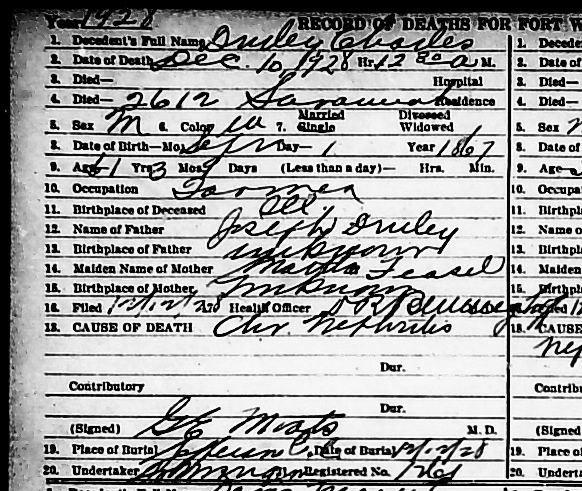 Year 1928 RECORD OF DEATHS FOR FORT W
1. Decedent's Full Name Charles 1. Decede
2. Date of Death Dec. 10, 1928 Hr. 12 30 a M. 2. Date of
3. Died— Hospital 3. Died—
4. Died— 2612 Savannah Residence 4. Died—
Married Divorced
5. Sex M 6. Color W 7. Single Widowed 5. Sex
8. Date of Birth—Mo. Day— 1 Year 1867 8. Date of
9. Age 61 Yrs. 3 Mos. 9 Days (Less than a day)— Hrs. Min. 9. Age
10. Occupation Farmer 10. Occupa
11. Birthplace of Deceased Ill. 11. Birthpl
12. Name of Father Joseph 12. Name o
13. Birthplace of Father unknown 13. Birthpl
14. Maiden Name of Mother Teasel 14. Maiden
15. Birthplace of Mother Unknown 15. Birthpl
16. Filed 12/12/28 Health Officer
18. CAUSE OF DEATH Chr. Nephritis 18. CAUSE
Dur.
Contributory Contribu
Dur.
(Signed) M. D. (Signed)
19. Place of Burial Date of Burial 12/12/28 19. Place of
20. Undertaker Registered No. 20. Undert